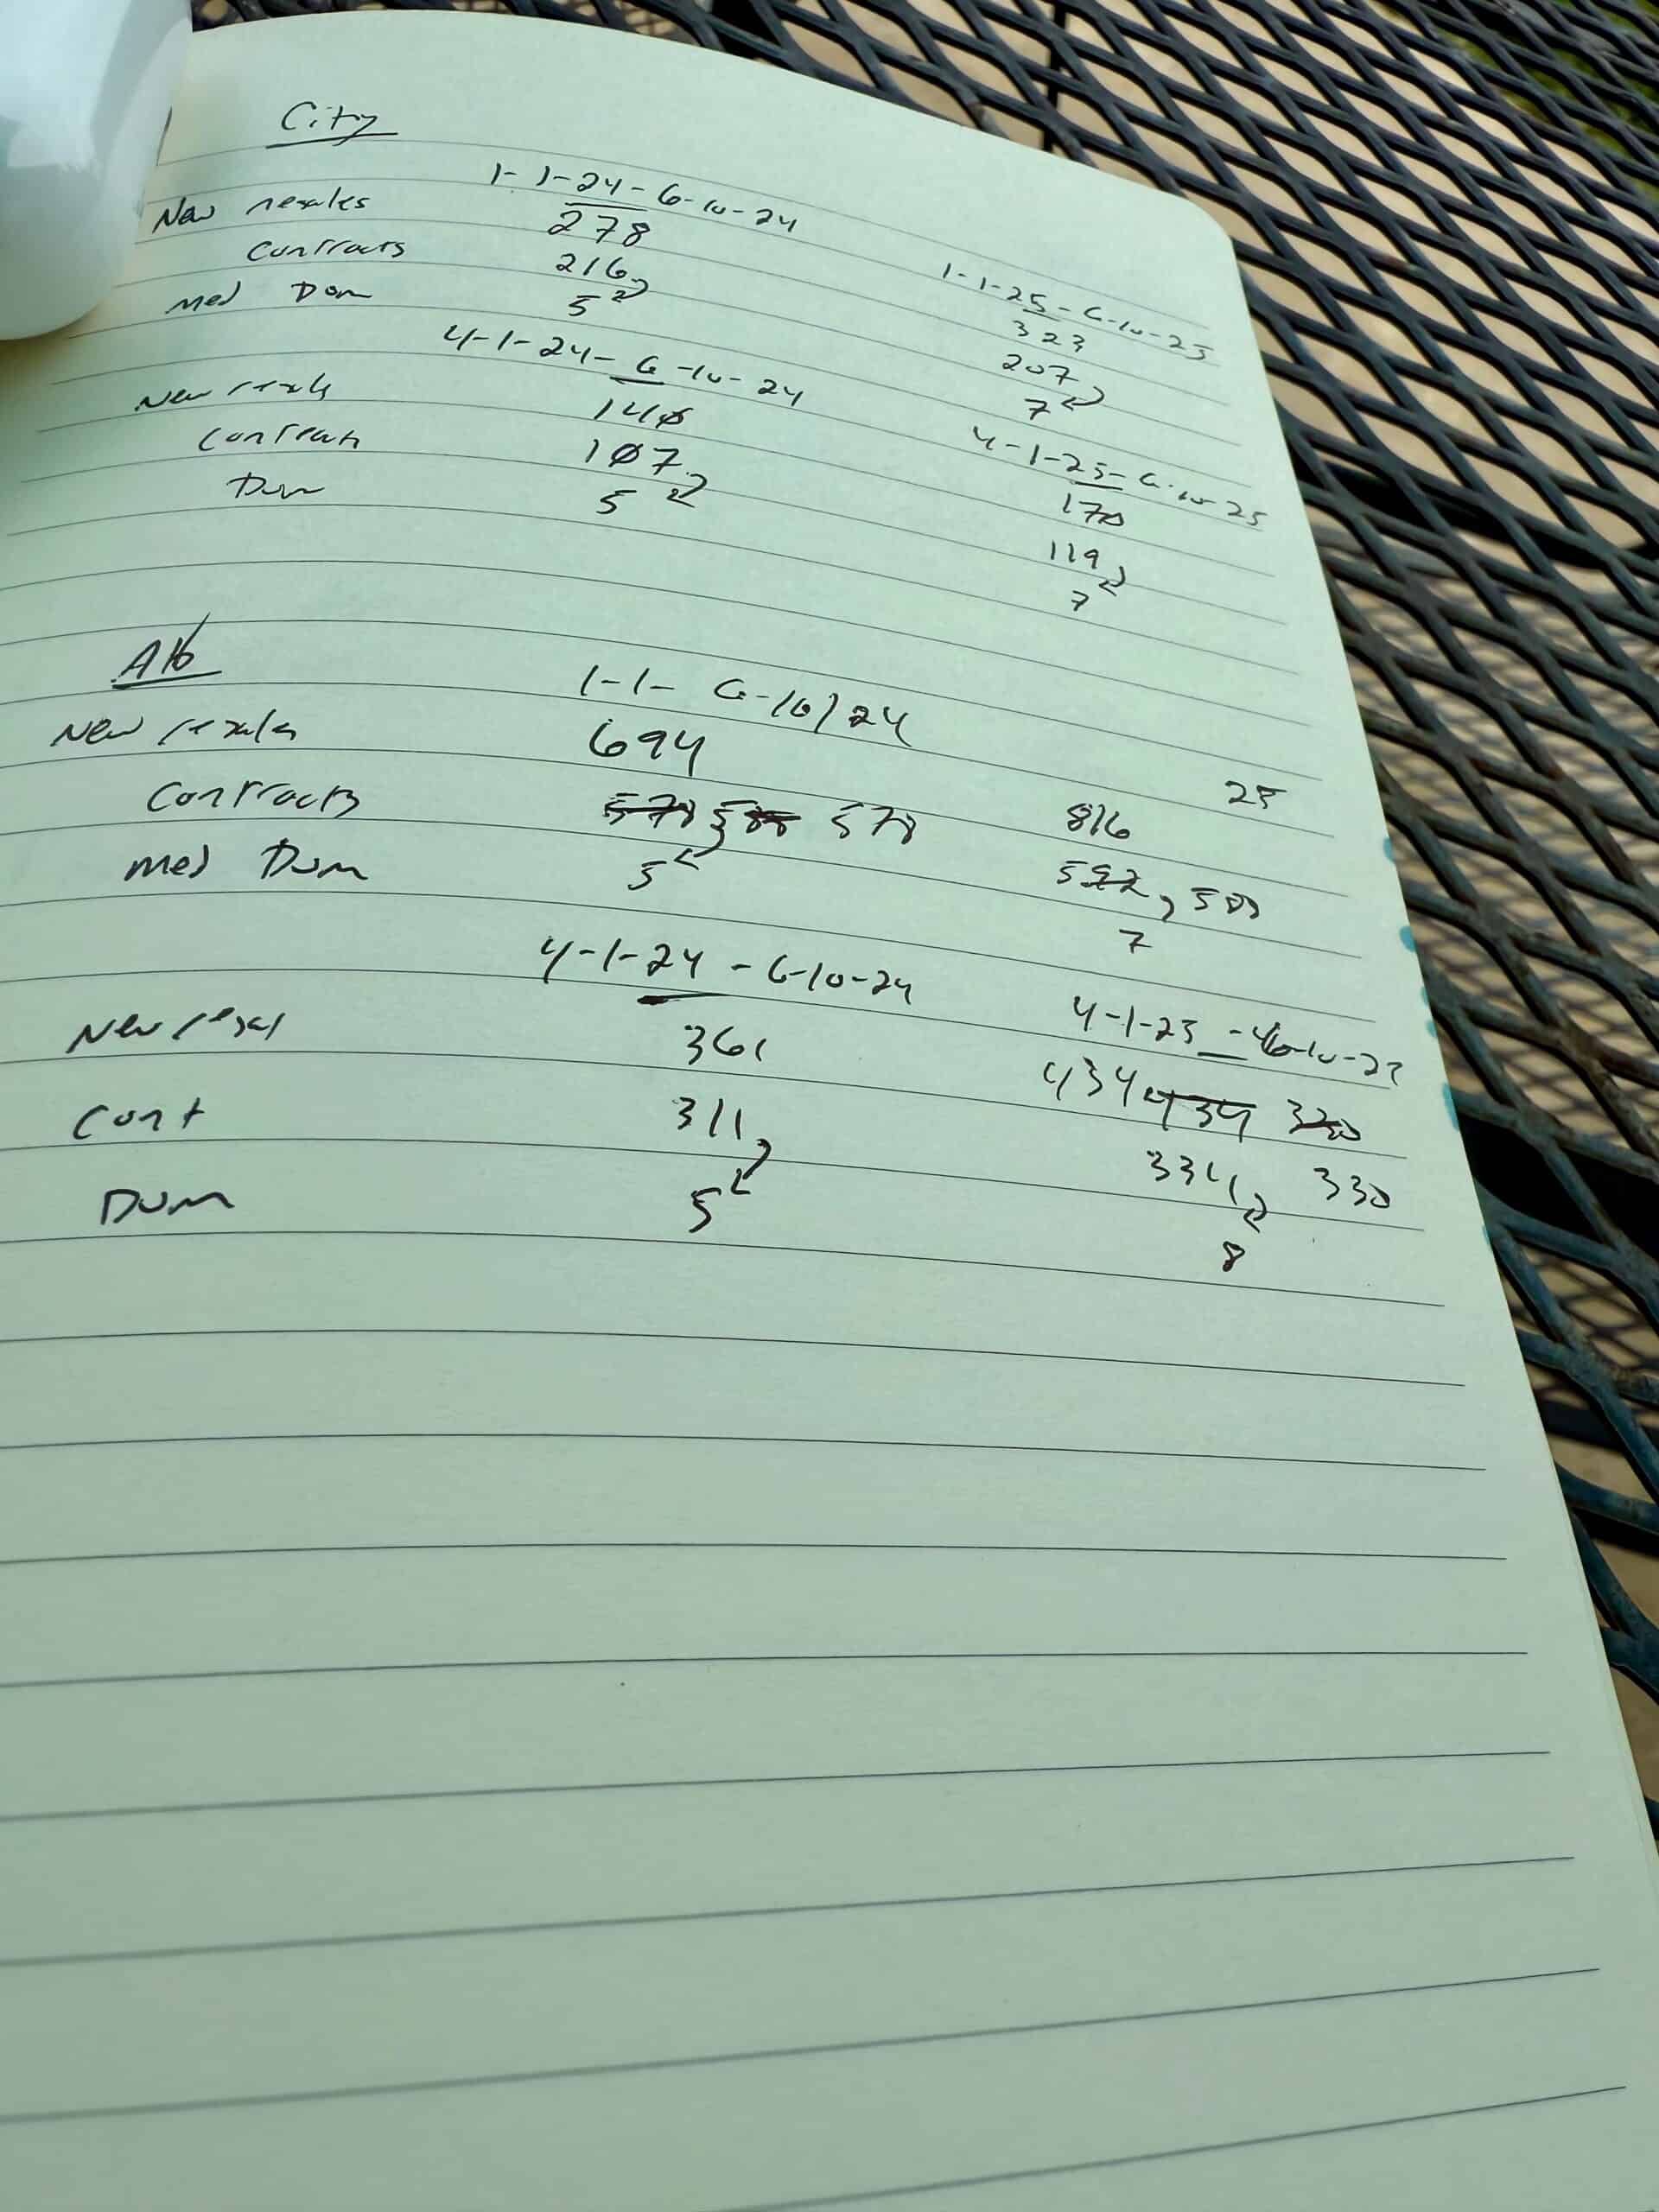 City
1-1-24-6-10-24
1-1-25-6-10-25
New resales 278 323
Contracts 216 207
Med Dom 5 7
4-1-24-6-10-24
4-1-25-6-10-25
New resals 140 170
Contracts 107 119
Dom 5 7
Alb
1-1-6-10/24 25
New resales 694 816
Contracts 578 578
Med Dom 5 7
4-1-24 - 6-10-24
4-1-25 - 6-10-25
New resal 361 434
Cont 311 334 330
Dom 5 8